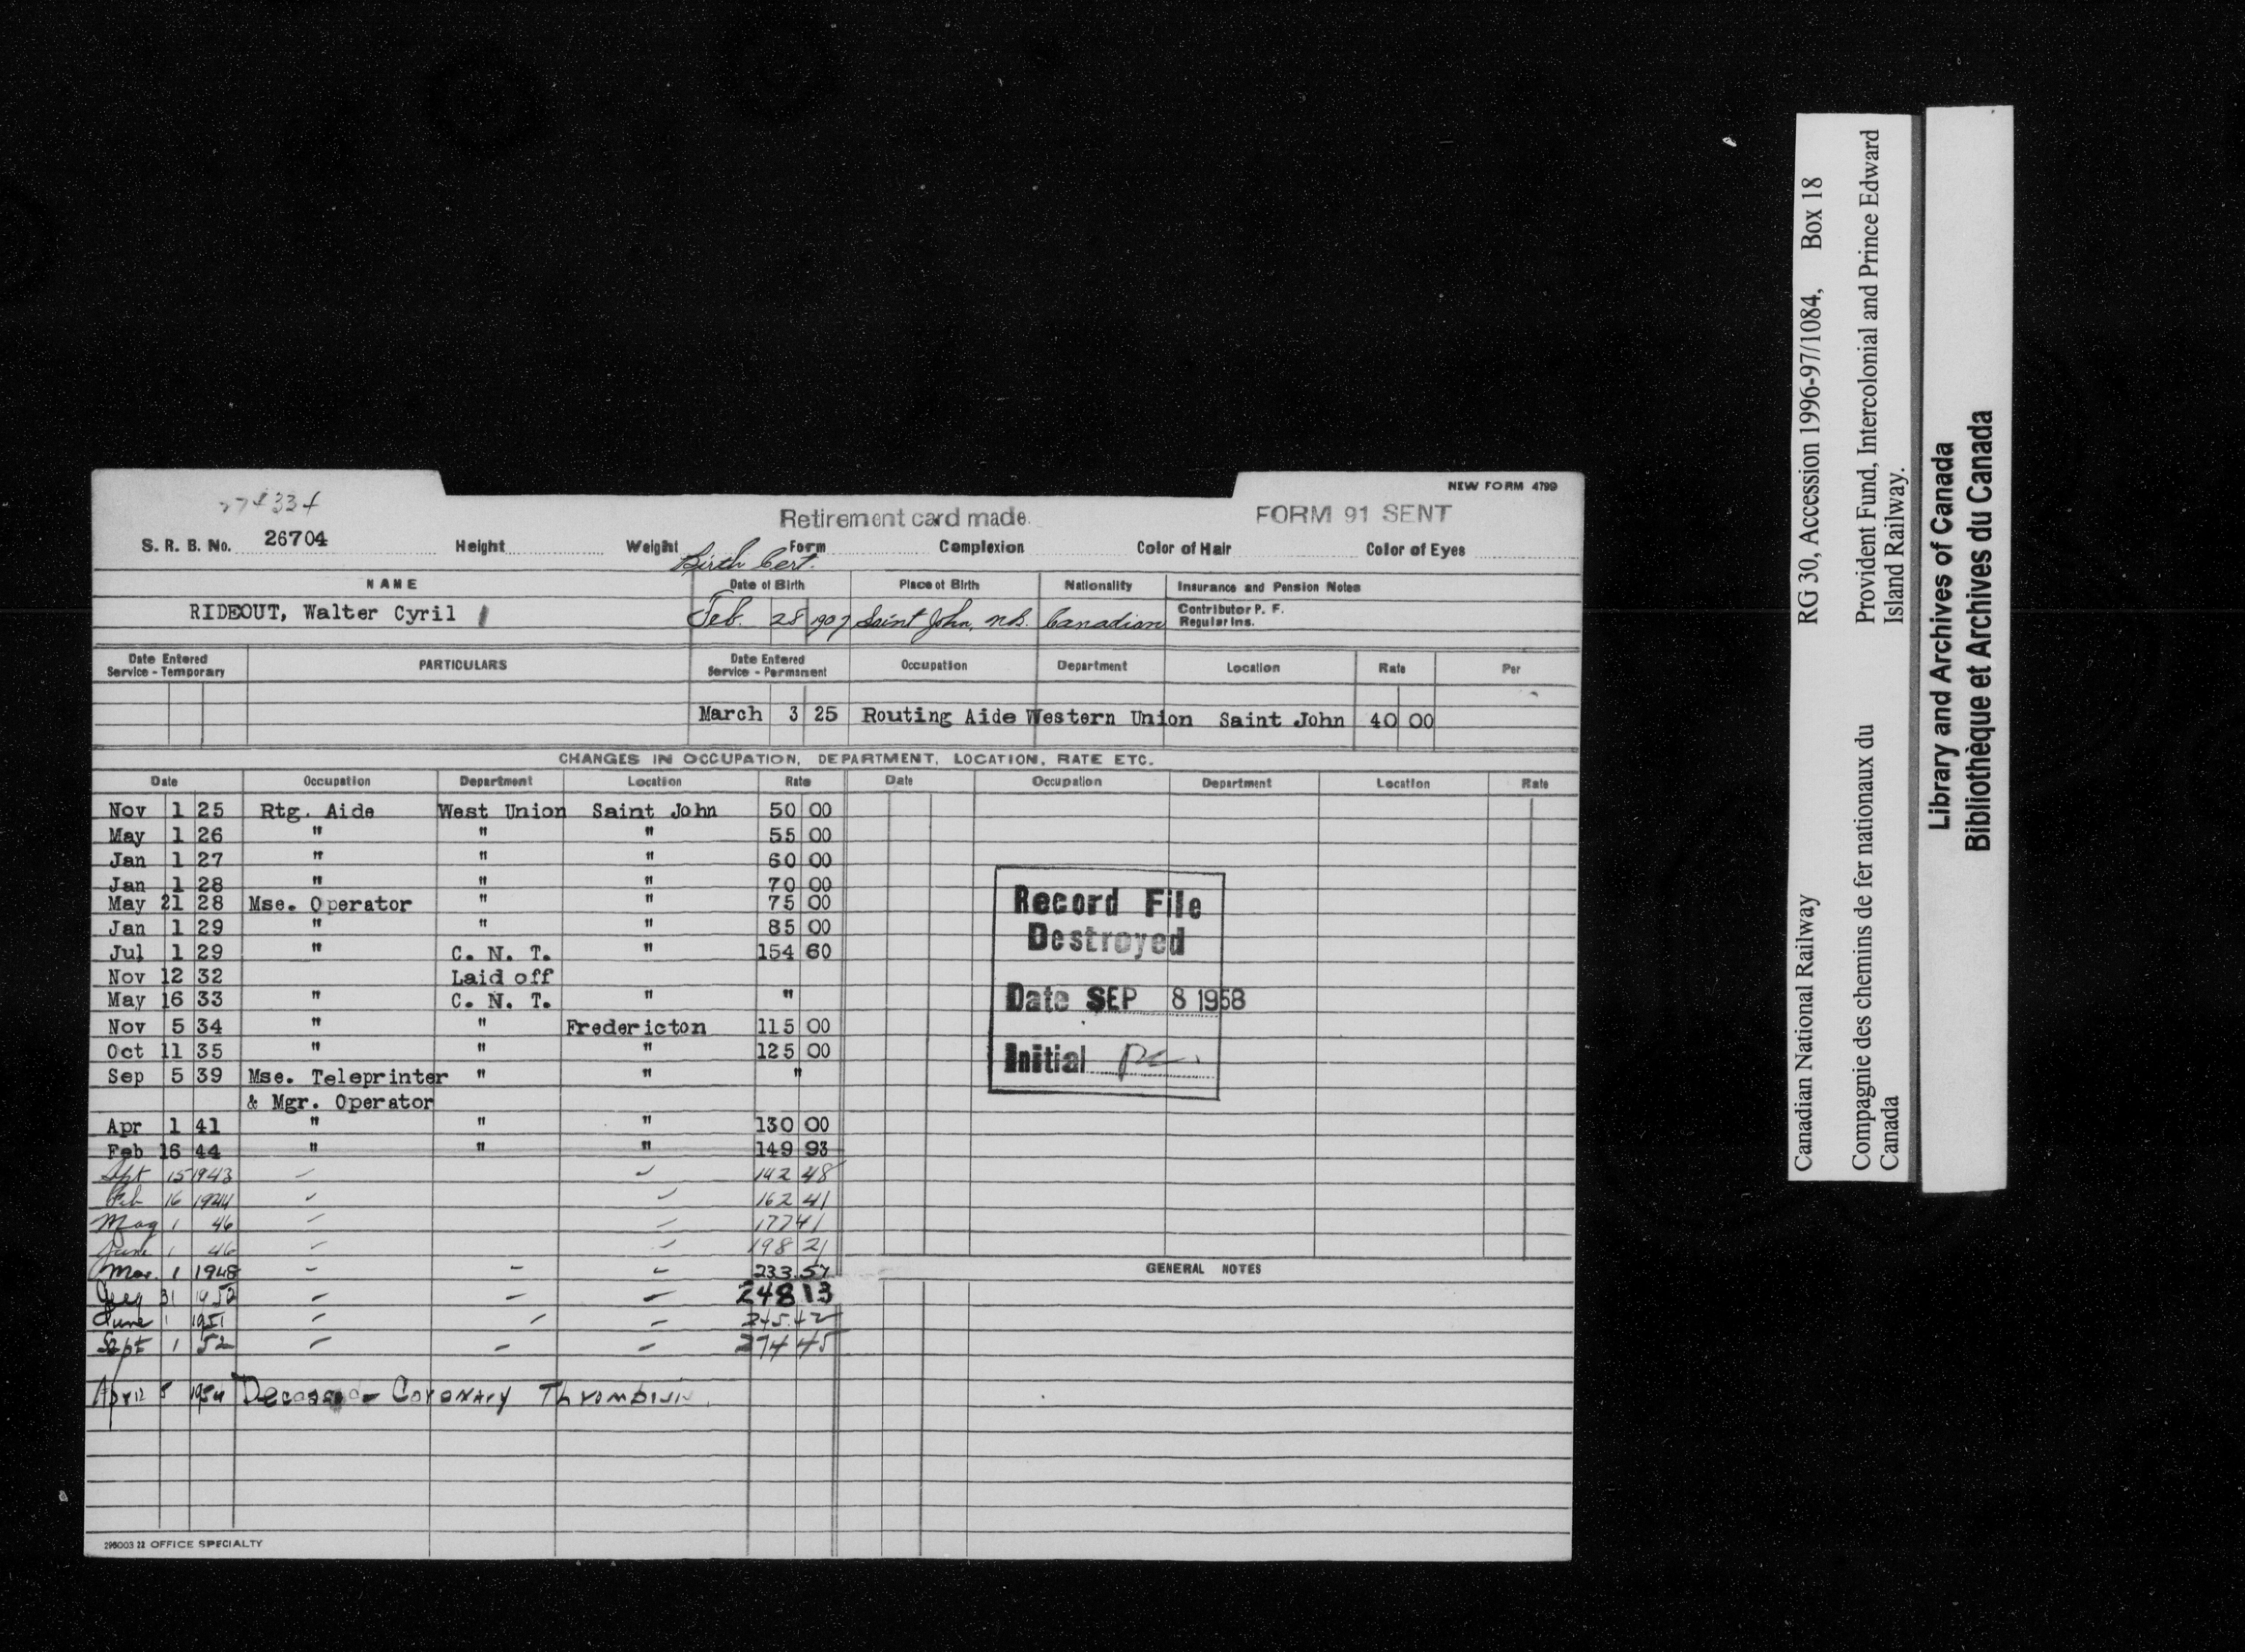 274334
Retirement card made.
FORM 91 SENT
NEW FORM 4799
S. R. B. No. 26704 Height Weight Form Complexion Color of Hair Color of Eyes
Birth Cert.
NAME Date of Birth Place of Birth Nationality Insurance and Pension Notes
RIDEOUT, Walter Cyril Feb. 28 1907 Saint John, N.B. Canadian Contributor P. F.
Regular Ins.
Date Entered Service - Temporary PARTICULARS Date Entered Service - Permanent Occupation Department Location Rate Per
March 3 25 Routing Aide Western Union Saint John 40 00
CHANGES IN OCCUPATION, DEPARTMENT, LOCATION, RATE ETC.
Date Occupation Department Location Rate Date Occupation Department Location Rate
Nov 1 25 Rtg. Aide West Union Saint John 50 00
May 1 26 " " " 55 00
Jan 1 27 " " " 60 00
Jan 1 28 " " " 70 00
May 21 28 Mse. Operator " " 75 00
Jan 1 29 " " " 85 00
Jul 1 29 " C. N. T. " 154 60
Nov 12 32 Laid off
May 16 33 " C. N. T. " "
Nov 5 34 " " Fredericton 115 00
Oct 11 35 " " " 125 00
Sep 5 39 Mse. Teleprinter " " "
& Mgr. Operator
Apr 1 41 " " " 130 00
Feb 16 44 " " " 149 93
Sept 15 1943 142 48
Feb 16 1944 162 41
May 1 46 177 41
June 1 46 198 21
Mar. 1 1948 - - - 233.57
31 - - - 248 13
June 1 1951 - - -
Sept 1 52 - - - 274 45
April 5 1954 Deceased - Coronary Thrombisis
Record File
Destroyed
Date SEP 8 1958
Initial
GENERAL NOTES
296003 22 OFFICE SPECIALTY
Canadian National Railway RG 30, Accession 1996-97/1084, Box 18
Compagnie des chemins de fer nationaux du Canada Provident Fund, Intercolonial and Prince Edward Island Railway.
Library and Archives of Canada
Bibliothèque et Archives du Canada